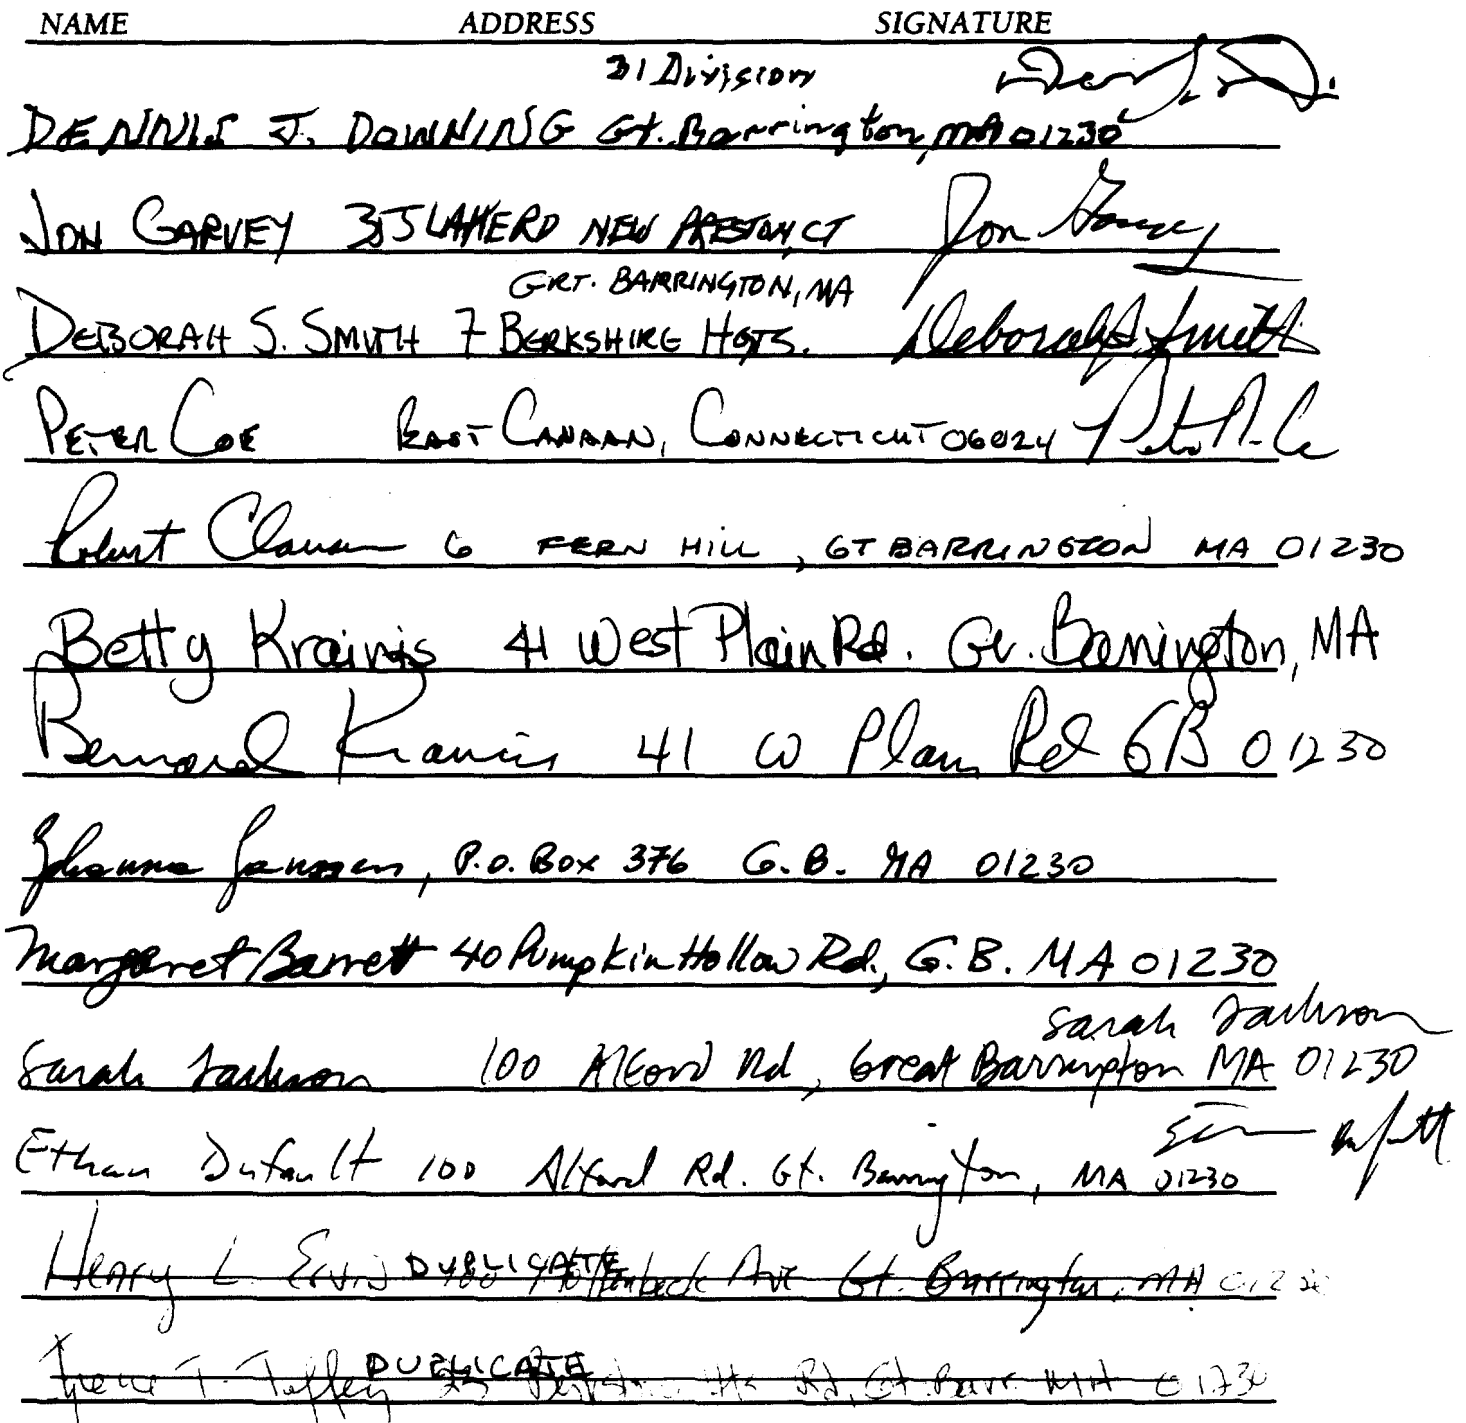 NAME ADDRESS SIGNATURE
31 Division
DENNIS J. DOWNING Gt. Barrington, MA 01230
JON GARVEY 35 LAKE RD NEW PRESTON, CT Jon Garvey
GRT. BARRINGTON, MA
DEBORAH S. SMITH 7 BERKSHIRE HGTS. Deborah S. Smith
PETER COE EAST CANAAN, CONNECTICUT 06024
Robert Clausen 6 FERN HILL, GT BARRINGTON MA 01230
Betty Krainis 41 West Plain Rd. Gt. Barrington, MA
Bernard Krainis 41 W Plain Rd GB 01230
Johanna Janssen, P.O. Box 376 G.B. MA 01230
Margaret Barrett 40 Pumpkin Hollow Rd., G.B. MA 01230
Sarah Jackson
Sarah Jackson 100 Alford Rd, Great Barrington MA 01230
Ethan Dufault 100 Alford Rd. Gt. Barrington, MA 01230
Henry L. DUPLICATE Hollenbeck Ave Gt. Barrington, MA
DUPLICATE Rd, Gt Barr MA 01230